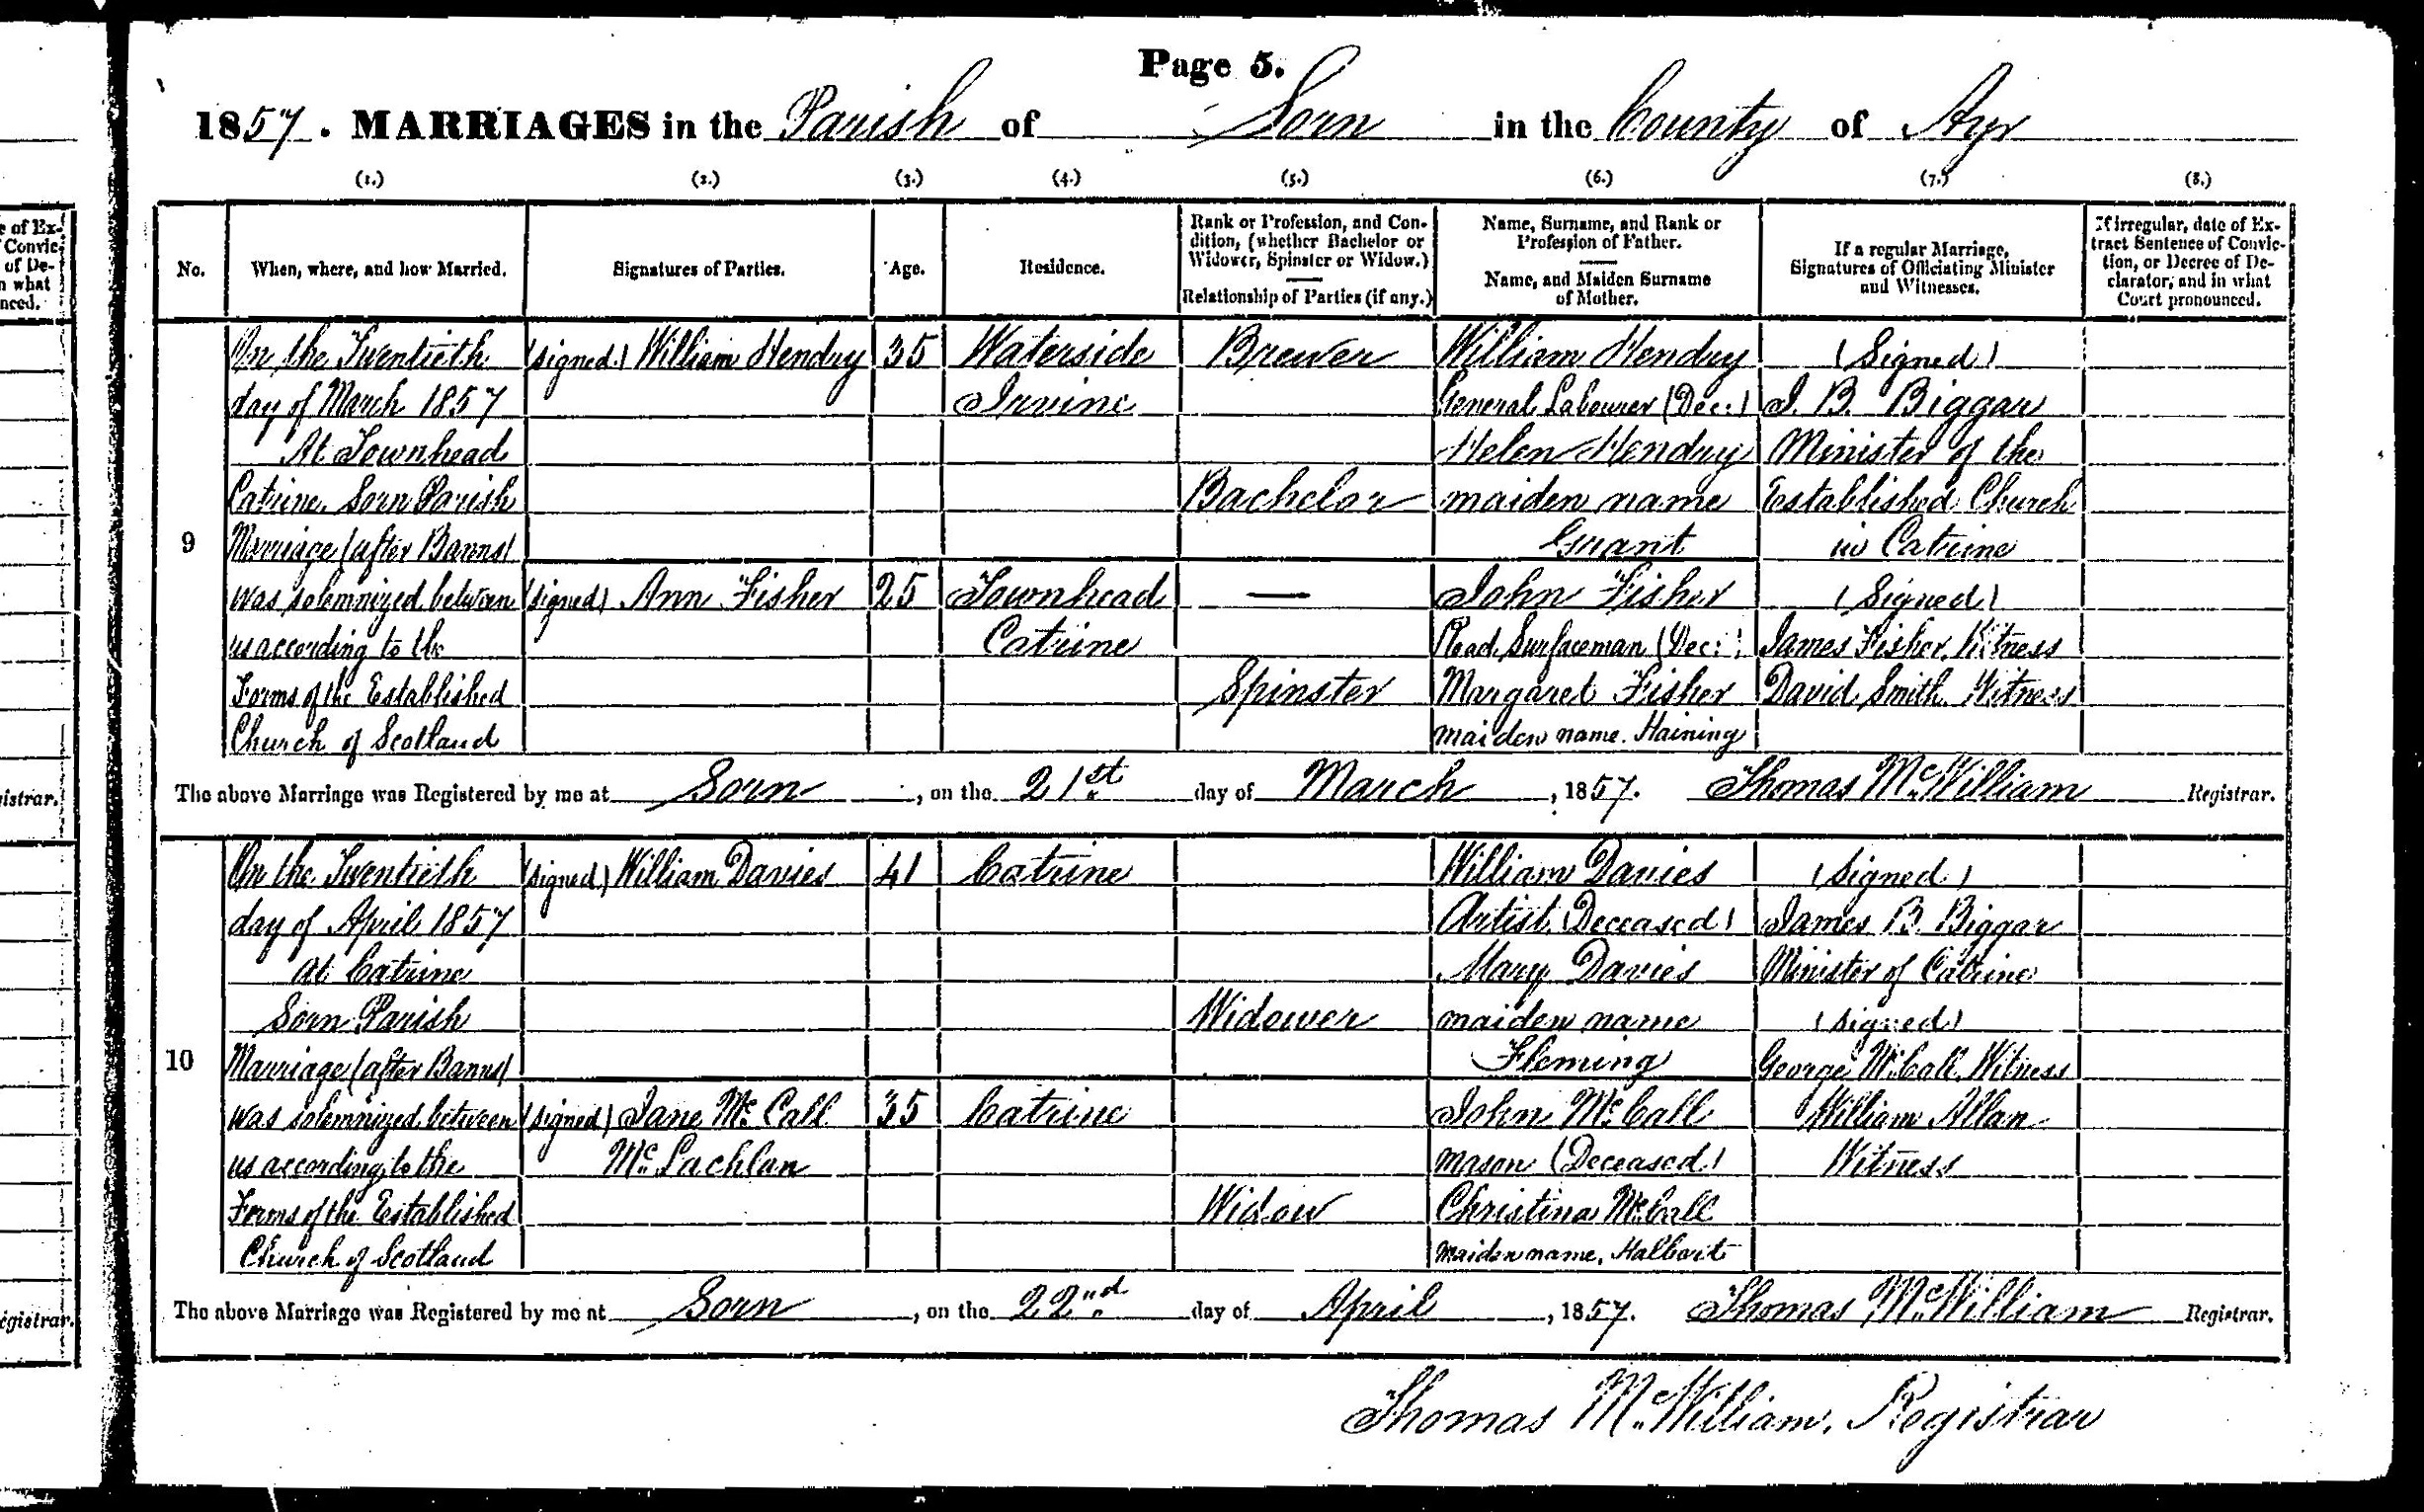 Page 5.
1857. MARRIAGES in the Parish of Sorn in the County of Ayr
(1.) (2.) (3.) (4.) (5.) (6.) (7.) (8.)
No.
When, where, and how Married.
Signatures of Parties.
Age.
Residence.
Rank or Profession, and Con-
dition, (whether Bachelor or
Widower, Spinster or Widow.)
Relationship of Parties (if any.)
Name, Surname, and Rank or
Profession of Father.
Name, and Maiden Surname
of Mother.
If a regular Marriage,
Signatures of Officiating Minister
and Witnesses.
If irregular, date of Ex-
tract Sentence of Convic-
tion, or Decree of De-
clarator, and in what
Court pronounced.
9
On the Twentieth
day of March 1857
At Townhead
Catrine, Sorn Parish
Marriage (after Banns)
was solemnized between
us according to the
Forms of the Established
Church of Scotland
(signed) William Hendry
(signed) Ann Fisher
35
25
Waterside
Irvine
Townhead
Catrine
Brewer
Bachelor
—
Spinster
William Hendry
General Labourer (Dec:)
Helen Hendry
maiden name
Grant
John Fisher
Road Surfaceman (Dec:)
Margaret Fisher
maiden name. Haining
(Signed)
J. B. Biggar
Minister of the
Established Church
in Catrine
(Signed)
James Fisher, Witness
David Smith, Witness
The above Marriage was Registered by me at Sorn, on the 21st day of March, 1857. Thomas McWilliam Registrar.
10
On the Twentieth
day of April 1857
At Catrine
Sorn Parish
Marriage (after Banns)
was solemnized between
us according to the
Forms of the Established
Church of Scotland
(signed) William Davies
(signed) Jane McCall
McLachlan
41
35
Catrine
Catrine
Widower
Widow
William Davies
Artist (Deceased)
Mary Davies
maiden name
Fleming
John McCall
mason (Deceased)
Christina McCall
maiden name, Halbert
(Signed)
James B. Biggar
Minister of Catrine
(signed)
George McCall, Witness
William Allan
Witness
The above Marriage was Registered by me at Sorn, on the 22nd day of April, 1857. Thomas McWilliam Registrar.
Thomas McWilliam, Registrar